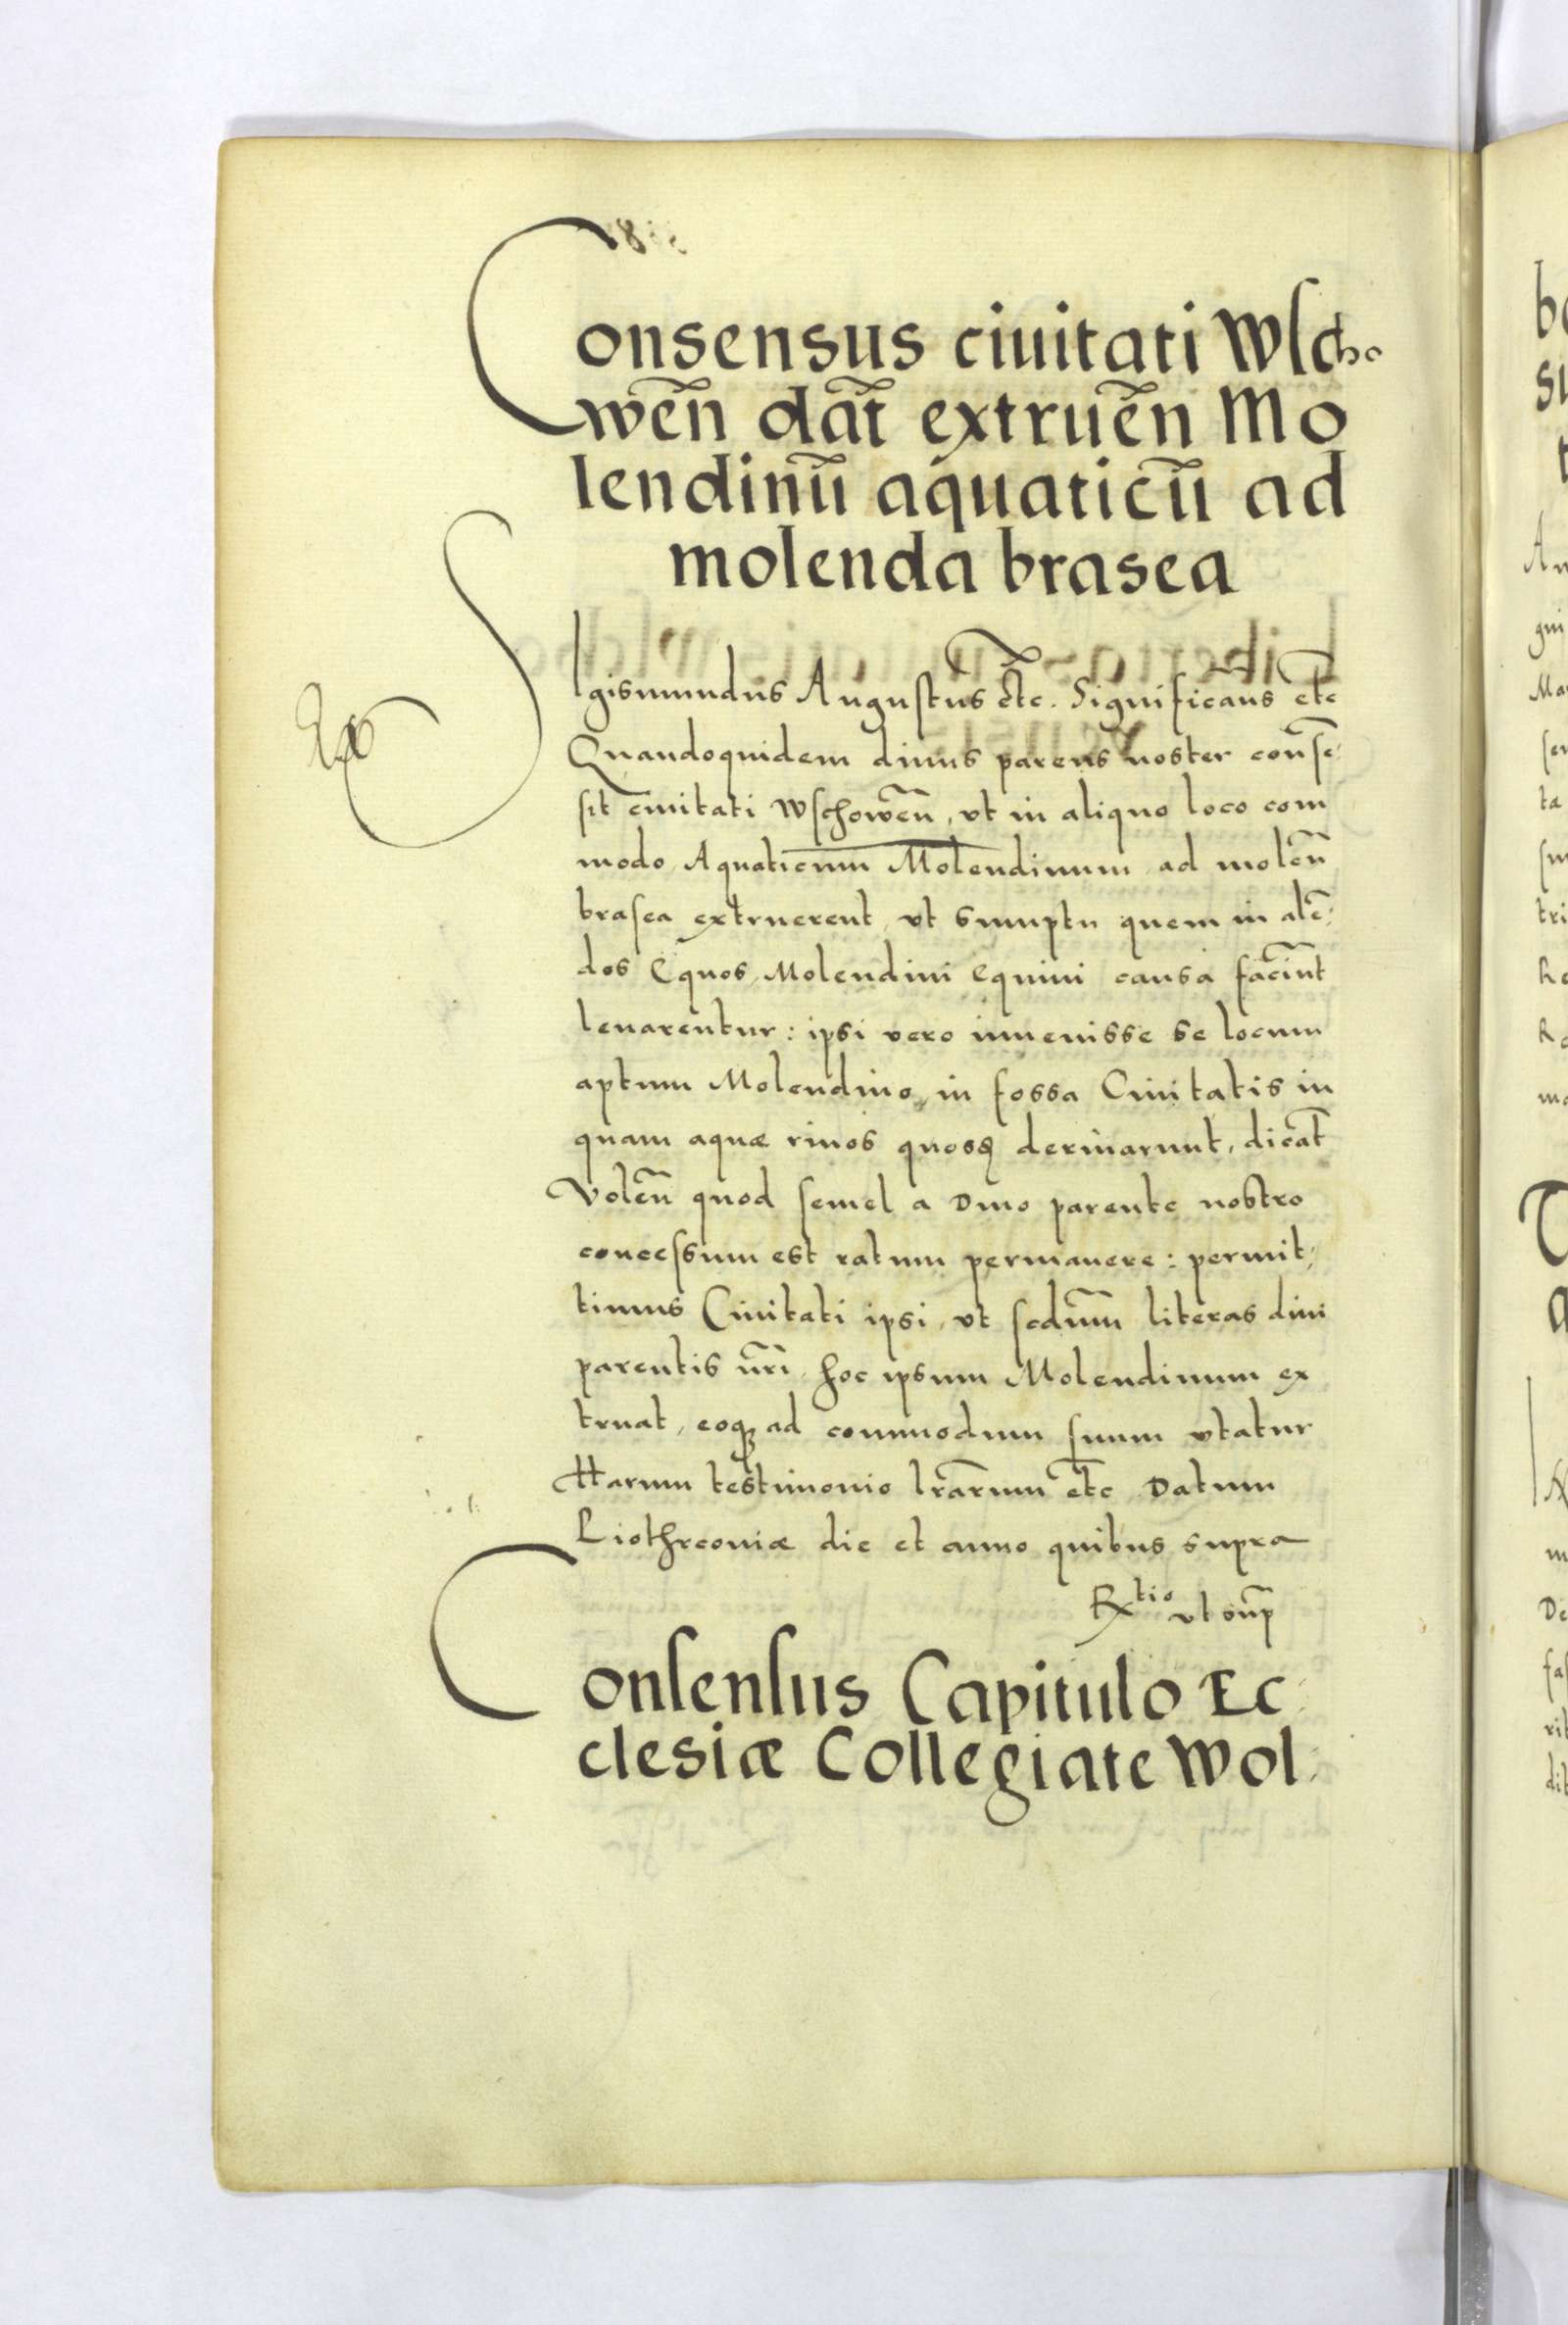 Consensus ciuitati Wscho
wen̄ dat̄ extruen̄ Mo
lendinū aquaticū ad
molenda brasea
SIgismundus Augustus etc. Significans etc
Quandoquidem diuus parens noster conse͂
sit ciuitati Wschowen̄, vt in aliquo loco com
modo, Aquaticum Molendinum ad molen̄
brasea extruerent, vt sumptu quem in ale͂
dos Equos, Molendini equini causa faciūt
leuarentur: ipsi vero inuenisse se locum
aptum Molendino, in fossa Ciuitatis in
quam aquæ riuos quosq deriuarunt, dicat̄
Volen̄ quod semel a Diuo parente nostro
concessum est ratum permanere: permit,
timus Ciuitati ipsi, vt sedūm literas diui
parentis nr̄i, hoc ipsum Molendinum ex
truat, eoqꝫ ad commodum suum vtatur
Harum testimonio lrārum etc Datum
Piothrcouiæ die et anno quibus supra
Rtio vt sup̄
Consensus Capitulo Ec
clesiæ Collegiate Wol